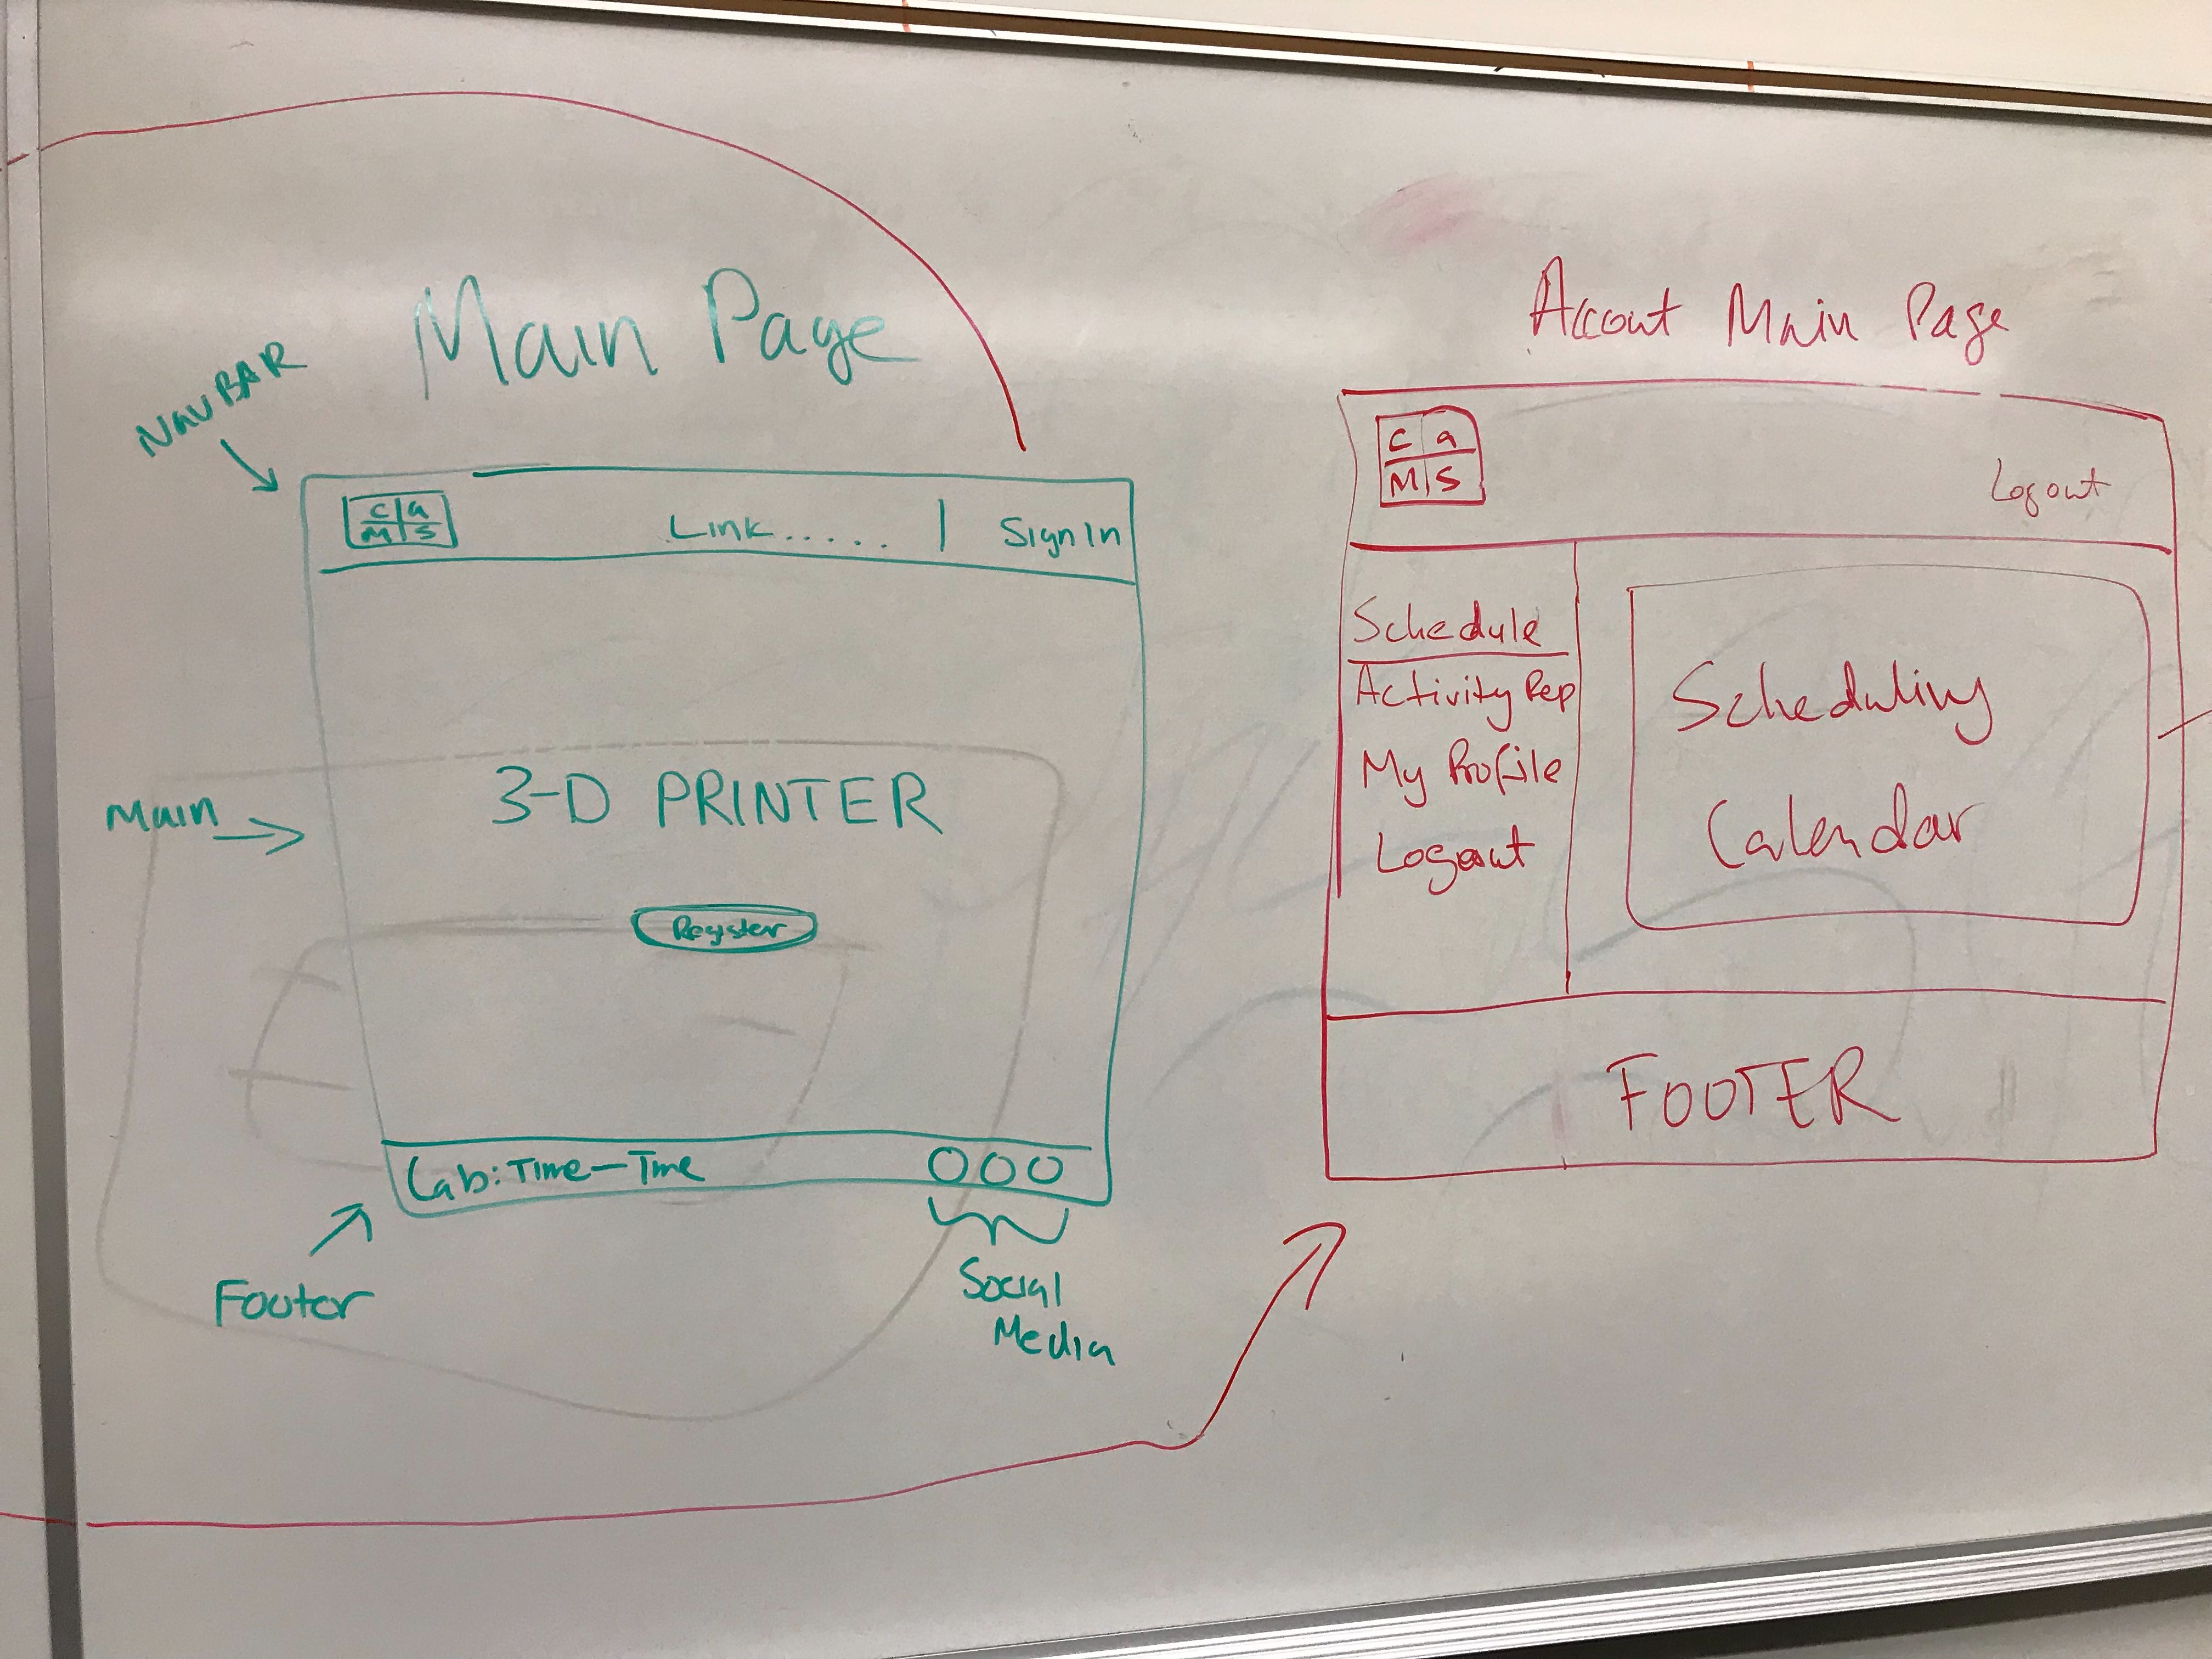 Main Page
NavBAR
c a
M S
Link.....
|
Sign In
Main
3-D PRINTER
Register
Lab: Time - Time
Footer
Social
Media
Accout Main Page
c a
M S
Logout
Schedule
Activity Rep
My Profile
Logout
Scheduling
Calendar
FOOTER